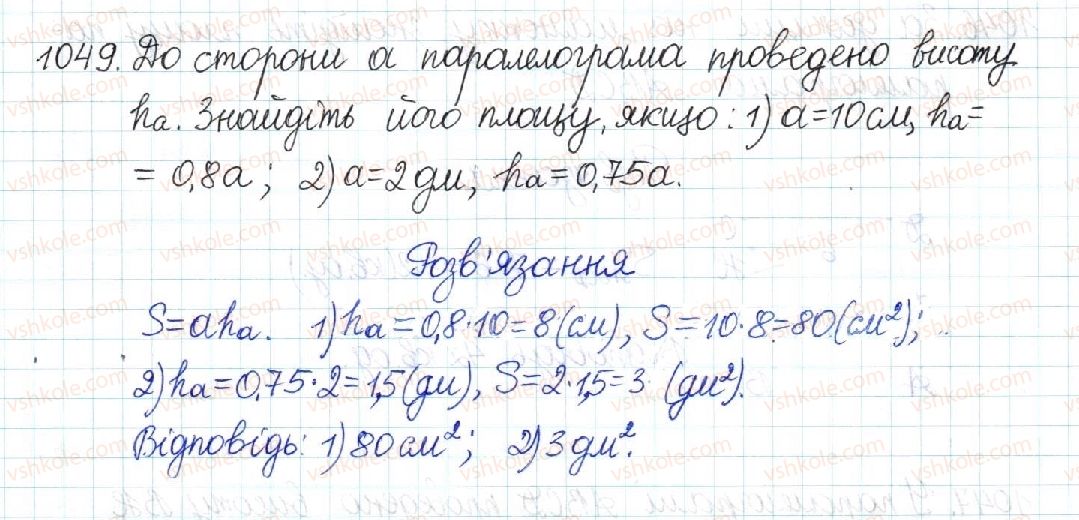 1049. До сторони a паралелограма проведено висоту
hₐ. Знайдіть його площу, якщо: 1) a=10см, hₐ=
= 0,8a; 2) a=2дм, hₐ=0,75a.
Розв'язання
S=ahₐ. 1) hₐ=0,8·10=8(см), S=10·8=80(см²);
2) hₐ=0,75·2=1,5(дм), S=2·1,5=3 (дм²).
Відповідь: 1) 80см²; 2) 3дм².